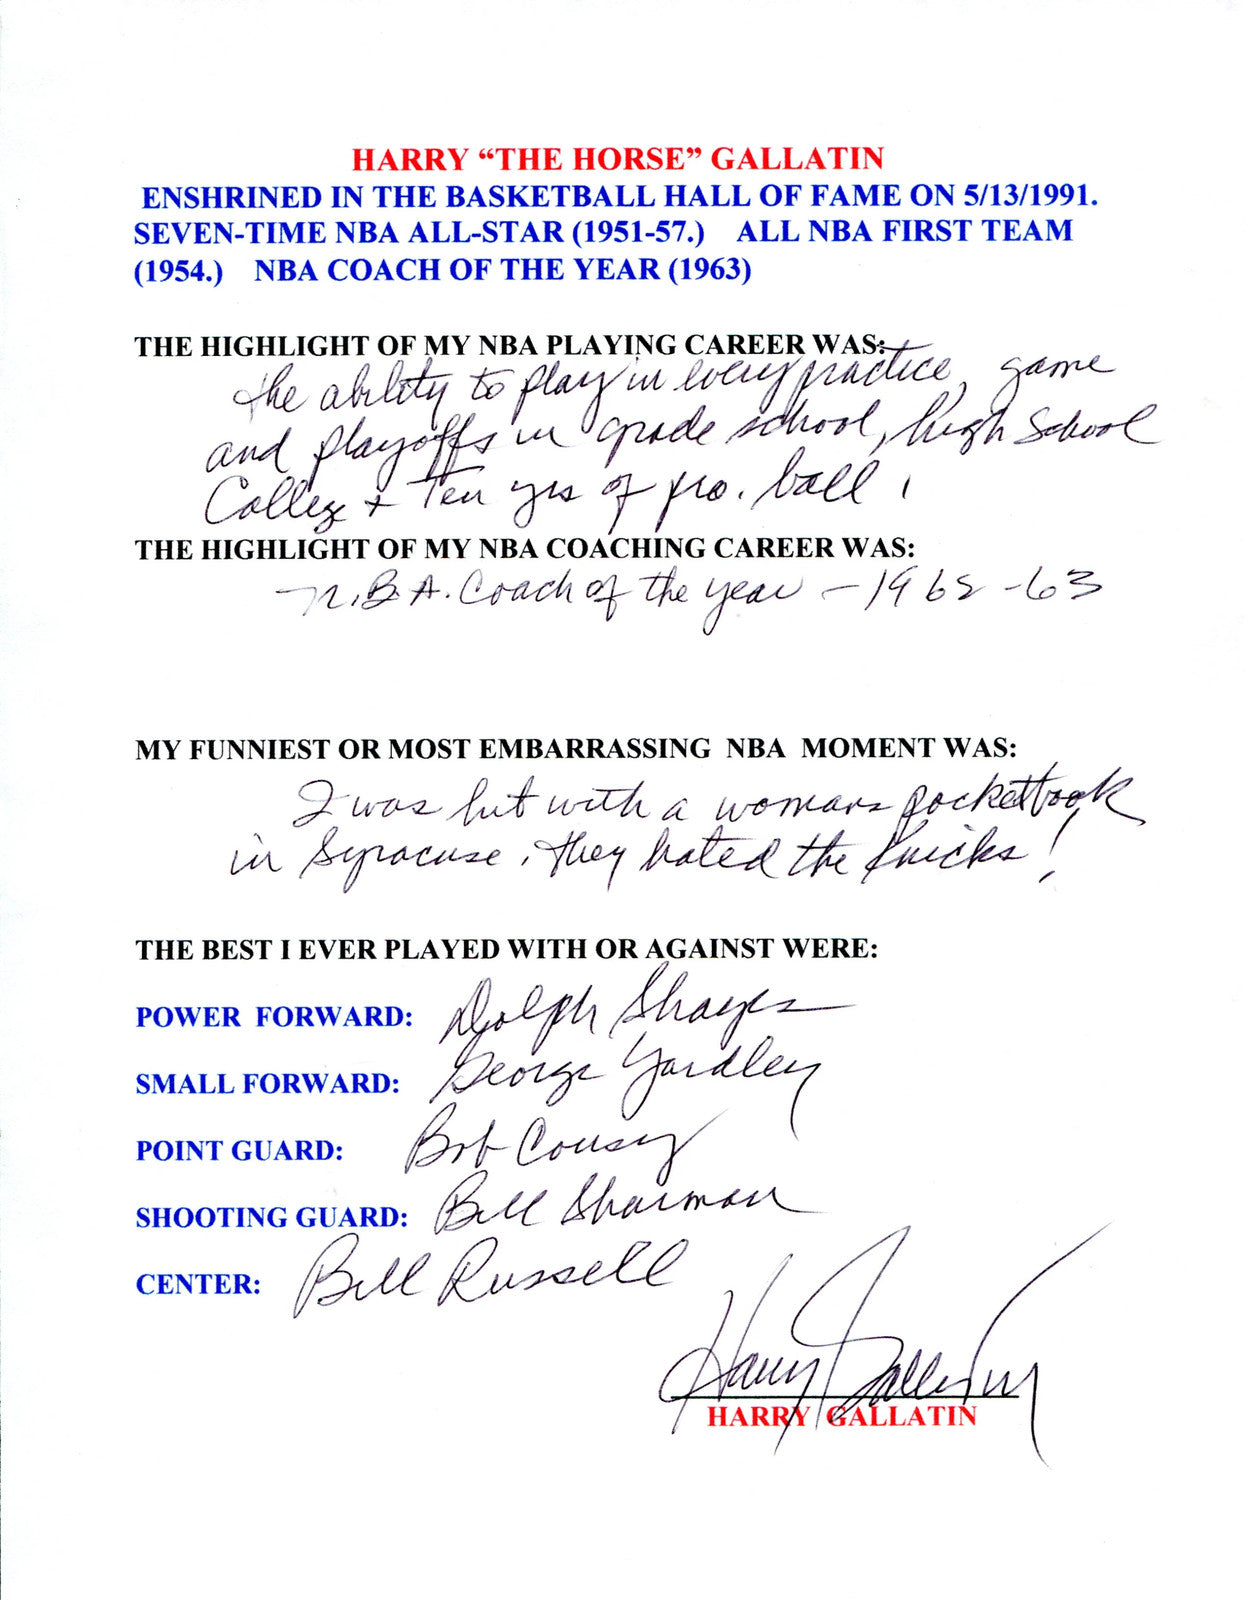 HARRY “THE HORSE” GALLATIN
ENSHRINED IN THE BASKETBALL HALL OF FAME ON 5/13/1991.
SEVEN-TIME NBA ALL-STAR (1951-57.) ALL NBA FIRST TEAM
(1954.) NBA COACH OF THE YEAR (1963)
THE HIGHLIGHT OF MY NBA PLAYING CAREER WAS:
the ability to play in every practice, game
and playoffs in grade school, high School
College + Ten yrs of pro. ball.
THE HIGHLIGHT OF MY NBA COACHING CAREER WAS:
N.B.A. Coach of the year - 1962 - 63
MY FUNNIEST OR MOST EMBARRASSING NBA MOMENT WAS:
I was hit with a womans pocketbook
in Syracuse. They hated the Knicks!
THE BEST I EVER PLAYED WITH OR AGAINST WERE:
POWER FORWARD: Dolph Shayes
SMALL FORWARD: George Yardley
POINT GUARD: Bob Cousy
SHOOTING GUARD: Bill Sharman
CENTER: Bill Russell
Harry Gallatin
HARRY GALLATIN